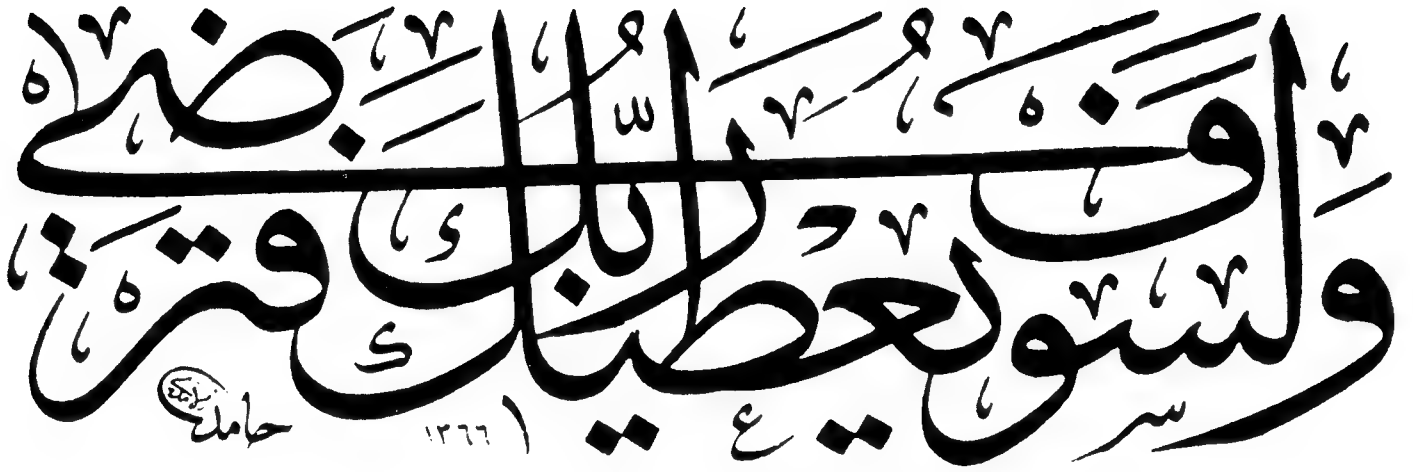 وَلَسَوْفَ يُعْطِيكَ رَبُّكَ فَتَرْضَىٰ
حامد
١٣٦٦